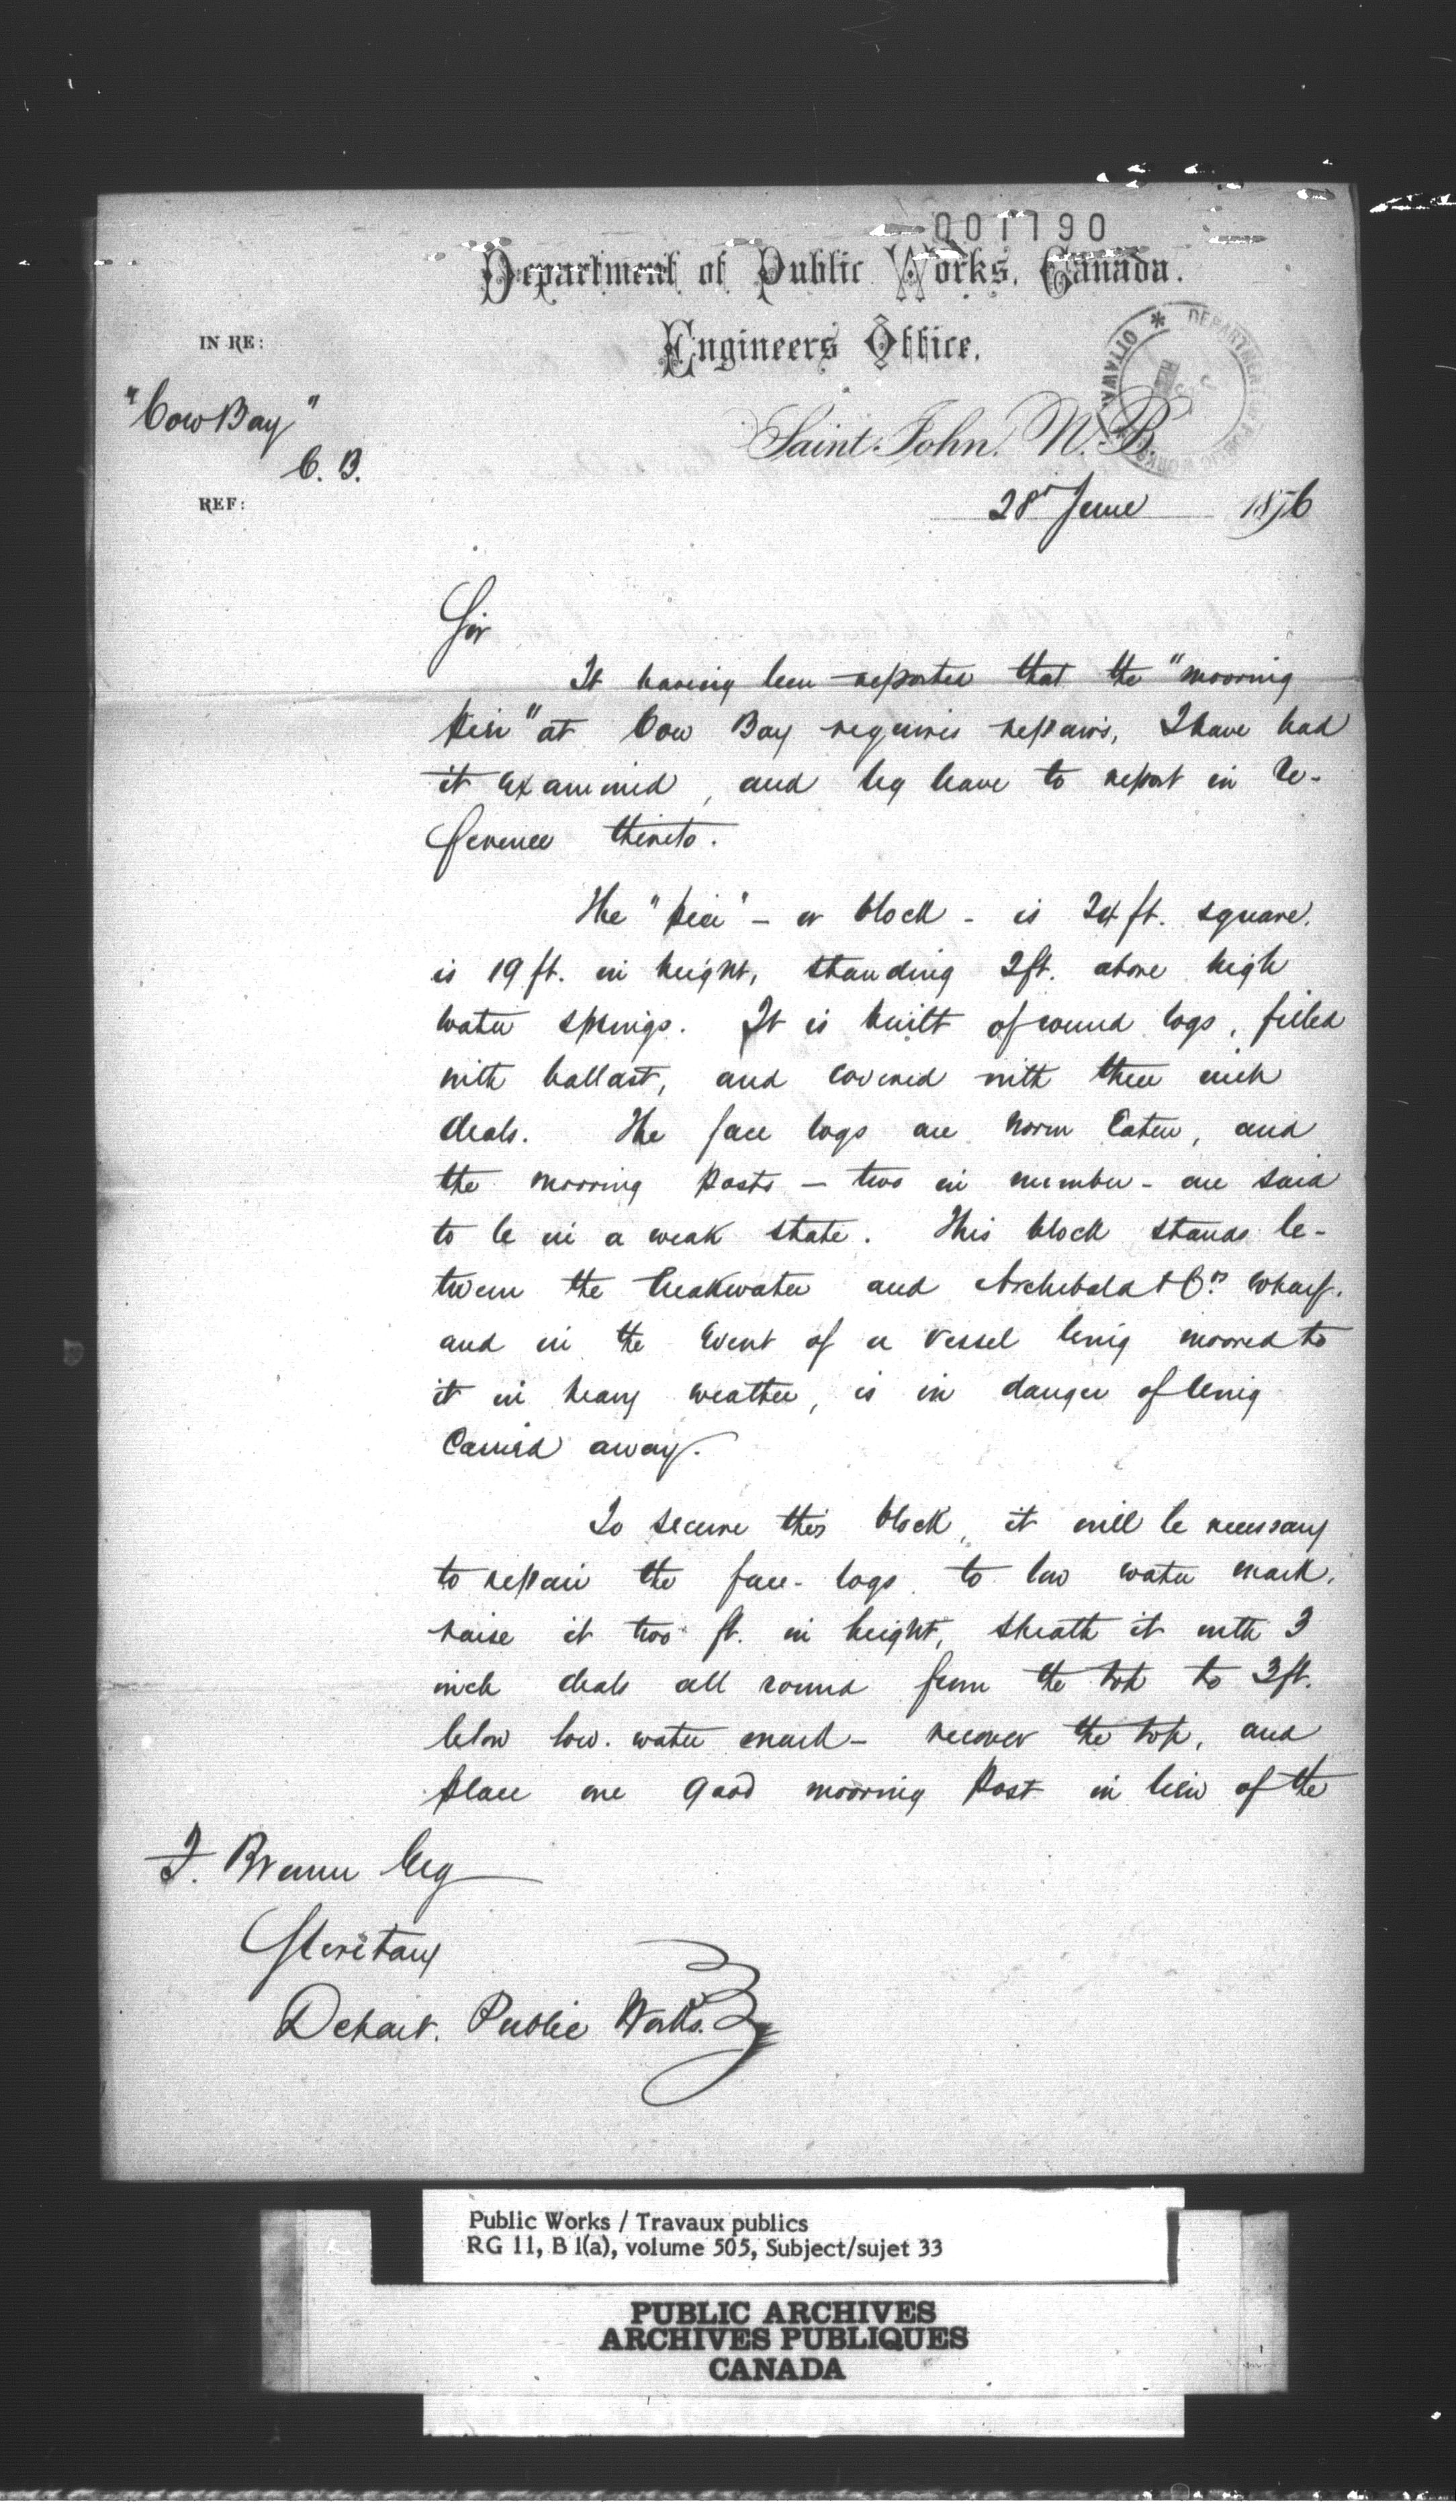 001190
Department of Public Works, Canada.
Engineers Office.
IN RE:
"Cow Bay"
C. B.
REF:
* DEPARTMENT OF PUBLIC WORKS * OTTAWA
Saint John, N. B.
28 June 1876
Sir
It having been reported that the "mooring
pier" at Cow Bay requires repairs, I have had
it examined, and beg leave to report in re-
ference thereto.
The "pier" - or block - is 24 ft. square.
is 19 ft. in height, standing 2ft. above high
water springs. It is built of round logs, filled
with ballast, and covered with three inch
deals. The face logs are worm eaten, and
the mooring posts - two in number - are said
to be in a weak state. This block stands be-
tween the breakwater and Archibald & Co's wharf.
and in the event of a vessel being moored to
it in heavy weather, is in danger of being
carried away.
To secure this block, it will be necessary
to repair the face-logs to low water mark,
raise it two ft. in height, sheath it with 3
inch deals all round from the top to 3ft.
below low-water mark - recover the top, and
place one good mooring post in lieu of the
F. Braun Esq
Secretary
Depart. Public Works.
Public Works / Travaux publics
RG 11, B 1(a), volume 505, Subject/sujet 33
PUBLIC ARCHIVES
ARCHIVES PUBLIQUES
CANADA